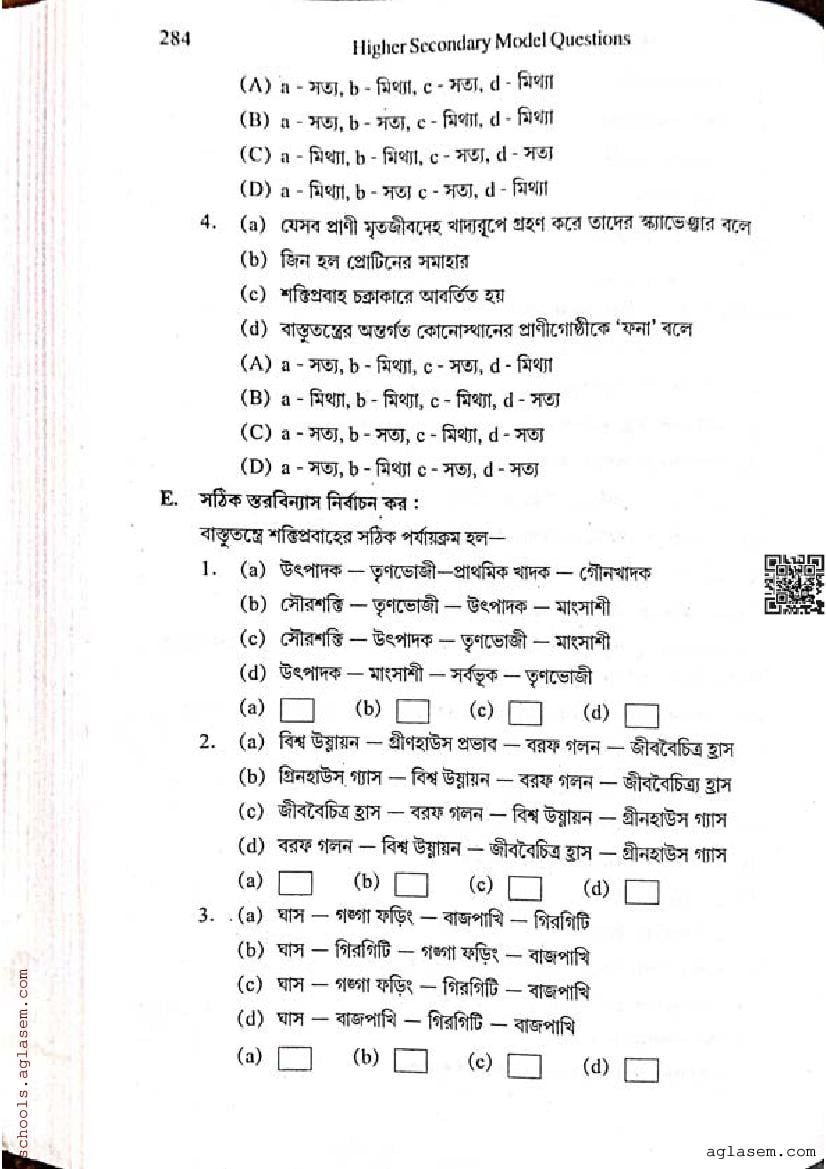 284
Higher Secondary Model Questions
(A) a - সত্য, b - মিথ্যা, c - সত্য, d - মিথ্যা
(B) a - সত্য, b - সত্য, c - মিথ্যা, d - মিথ্যা
(C) a - মিথ্যা, b - মিথ্যা, c - সত্য, d - সত্য
(D) a - মিথ্যা, b - সত্য c - সত্য, d - মিথ্যা
4. (a) যেসব প্রাণী মৃতজীবদেহ খাদ্যরূপে গ্রহণ করে তাদের স্ক্যাভেঞ্জার বলে
(b) জিন হল প্রোটিনের সমাহার
(c) শক্তিপ্রবাহ চক্রাকারে আবর্তিত হয়
(d) বাস্তুতন্ত্রের অন্তর্গত কোনোস্থানের প্রাণীগোষ্ঠীকে ‘ফনা’ বলে
(A) a - সত্য, b - মিথ্যা, c - সত্য, d - মিথ্যা
(B) a - মিথ্যা, b - মিথ্যা, c - মিথ্যা, d - সত্য
(C) a - সত্য, b - সত্য, c - মিথ্যা, d - সত্য
(D) a - সত্য, b - মিথ্যা c - সত্য, d - সত্য
E. সঠিক স্তরবিন্যাস নির্বাচন কর :
বাস্তুতন্ত্রে শক্তিপ্রবাহের সঠিক পর্যায়ক্রম হল—
1. (a) উৎপাদক — তৃণভোজী—প্রাথমিক খাদক — গৌনখাদক
(b) সৌরশক্তি — তৃণভোজী — উৎপাদক — মাংসাশী
(c) সৌরশক্তি — উৎপাদক — তৃণভোজী — মাংসাশী
(d) উৎপাদক — মাংসাশী — সর্বভূক — তৃণভোজী
(a) (b) (c) (d)
2. (a) বিশ্ব উষ্ণায়ন — গ্রীণহাউস প্রভাব — বরফ গলন — জীববৈচিত্র হ্রাস
(b) গ্রিনহাউস গ্যাস — বিশ্ব উষ্ণায়ন — বরফ গলন — জীববৈচিত্র্য হ্রাস
(c) জীববৈচিত্র হ্রাস — বরফ গলন — বিশ্ব উষ্ণায়ন — গ্রীনহাউস গ্যাস
(d) বরফ গলন — বিশ্ব উষ্ণায়ন — জীববৈচিত্র হ্রাস — গ্রীনহাউস গ্যাস
(a) (b) (c) (d)
3. (a) ঘাস — গঙ্গা ফড়িং — বাজপাখি — গিরগিটি
(b) ঘাস — গিরগিটি — গঙ্গা ফড়িং — বাজপাখি
(c) ঘাস — গঙ্গা ফড়িং — গিরগিটি — বাজপাখি
(d) ঘাস — বাজপাখি — গিরগিটি — বাজপাখি
(a) (b) (c) (d)
schools.aglasem.com
aglasem.com